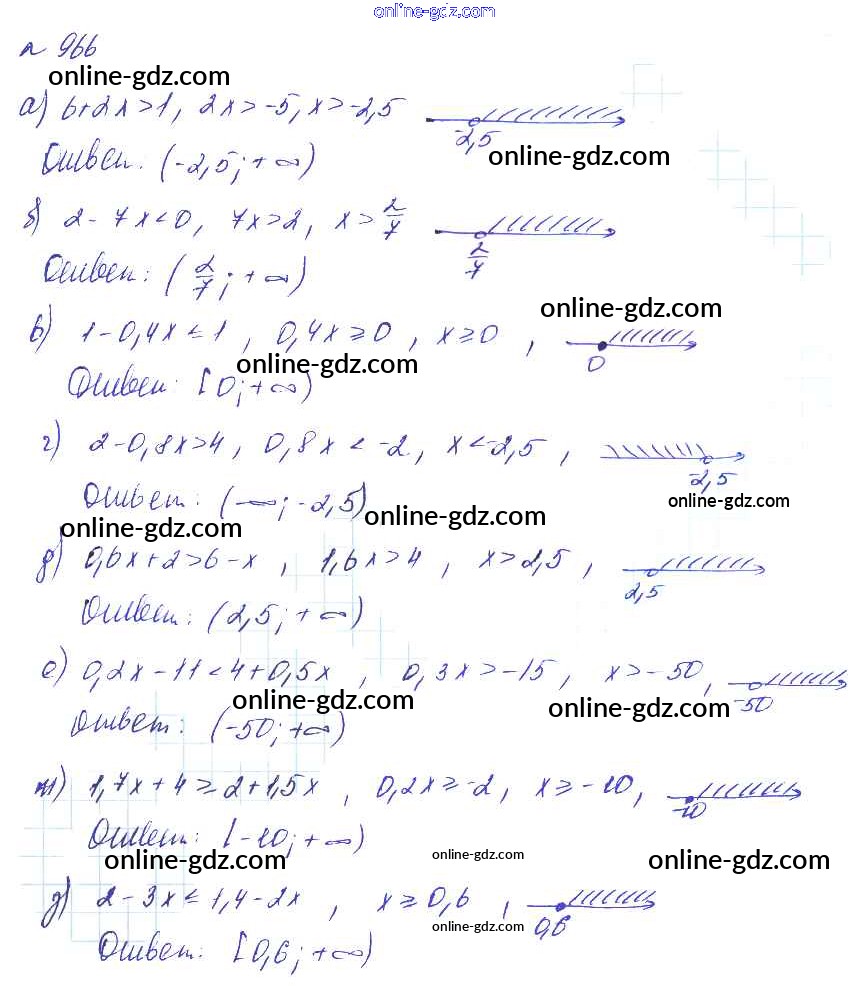 online-gdz.com
№ 966
online-gdz.com
а) 6+2x>1, 2x>-5, x>-2,5 -2,5
Ответ: (-2,5; +∞) online-gdz.com
б) 2-7x<0, 7x>2, x>2/7 2/7
Ответ: (2/7; +∞)
online-gdz.com
в) 1-0,4x≤1, 0,4x≥0, x≥0, 0
online-gdz.com
Ответ: [0; +∞)
г) 2-0,8x>4, 0,8x<-2, x<-2,5, -2,5
Ответ: (-∞; -2,5) online-gdz.com
online-gdz.com online-gdz.com
д) 0,6x+2>6-x, 1,6x>4, x>2,5, 2,5
Ответ: (2,5; +∞)
е) 0,2x-11<4+0,5x, 0,3x>-15, x>-50, -50
online-gdz.com online-gdz.com
Ответ: (-50; +∞)
ж) 1,7x+4≥2+1,5x, 0,2x≥-2, x≥-10, -10
Ответ: [-10; +∞)
online-gdz.com online-gdz.com online-gdz.com
2-3x≤1,4-2x, x≥0,6, 0,6
online-gdz.com
Ответ: [0,6; +∞)
online-gdz.com